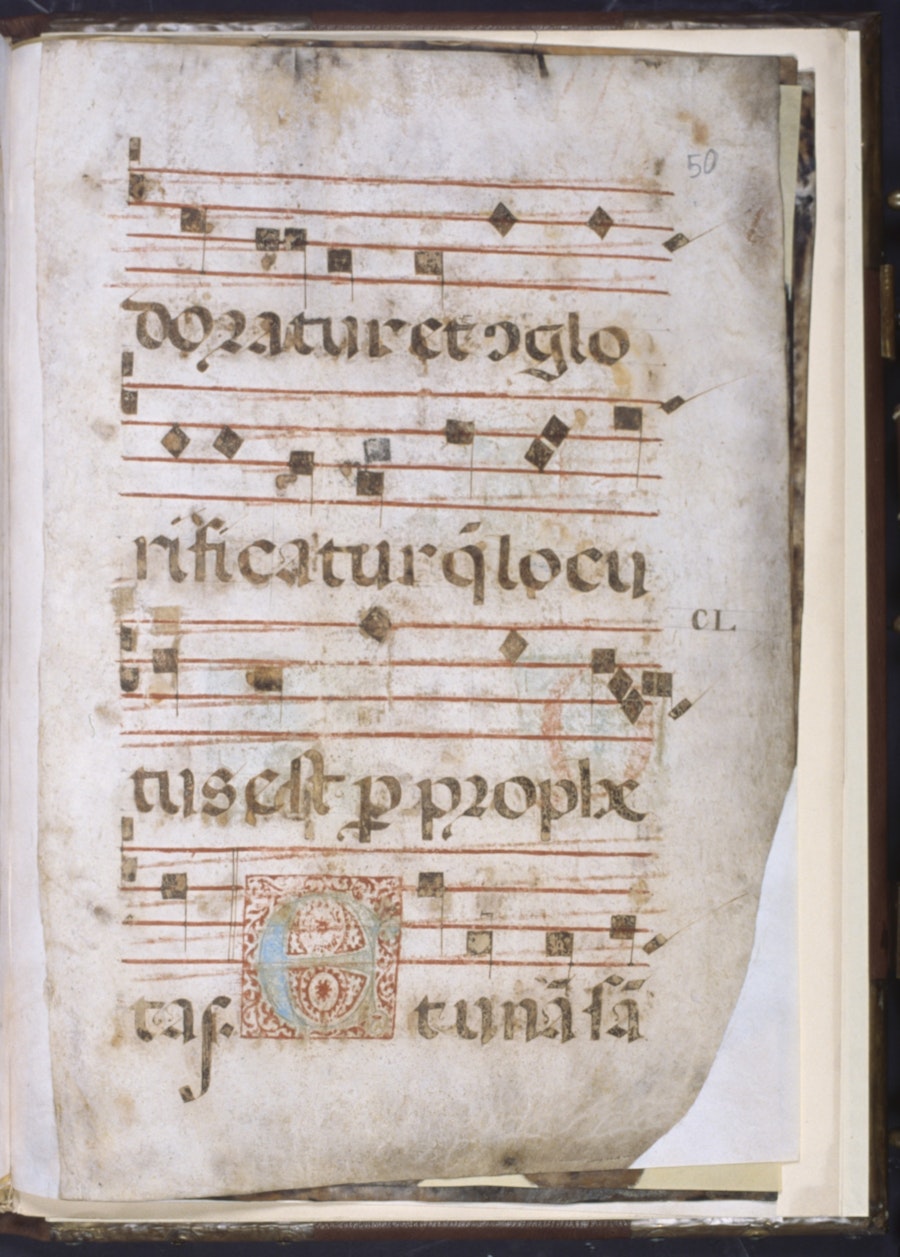 50
doꝛatur et ꝯglo
rificatur q̉ locu
CL
tus est ꝑ pꝛophe
tas. Et unā sā